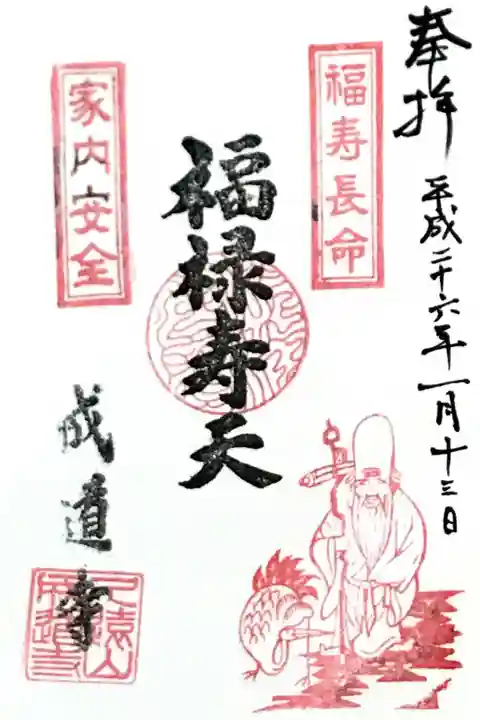 奉拝
平成二十六年一月十三日
福寿長命
福禄寿天
家内安全
成道寺